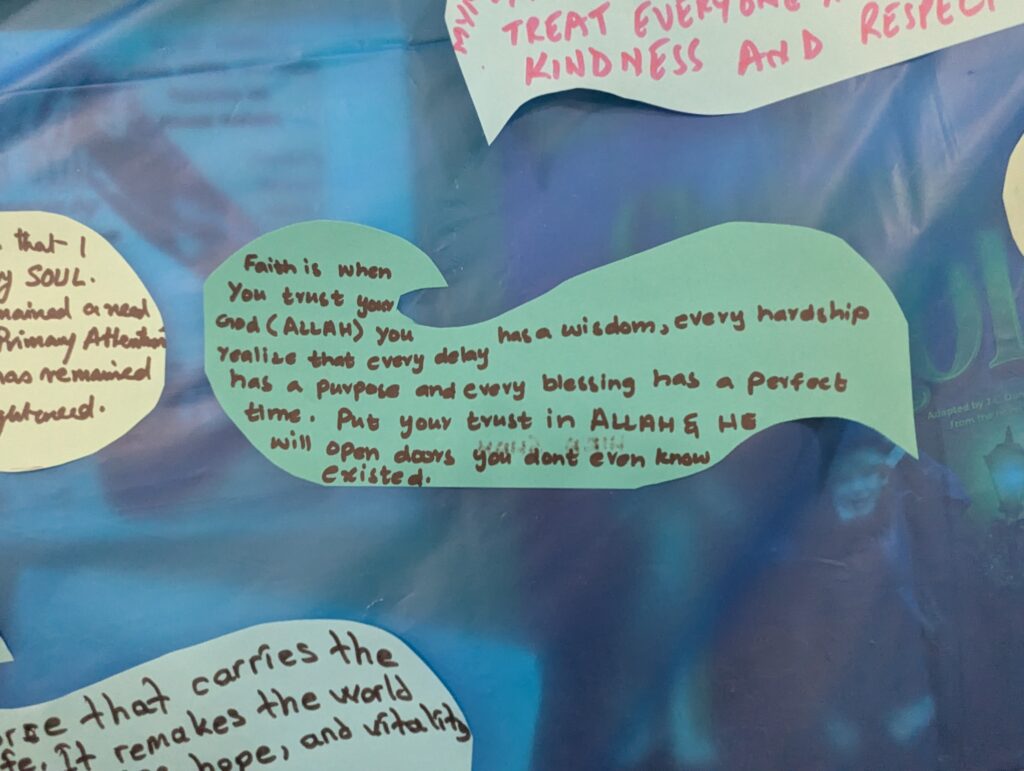 TREAT EVERYONE
KINDNESS AND RESPECT
that I
SOUL.
mained a need
Primary Attention
has remained
Faith is when
You trust your
God (ALLAH) you
realize that every delay
has a wisdom, every hardship
has a purpose and every blessing has a perfect
time. Put your trust in ALLAH & HE
will open doors you dont even know
existed.
Adapted by J.C.
from the
that carries the
It remakes the world
hope, and vitality